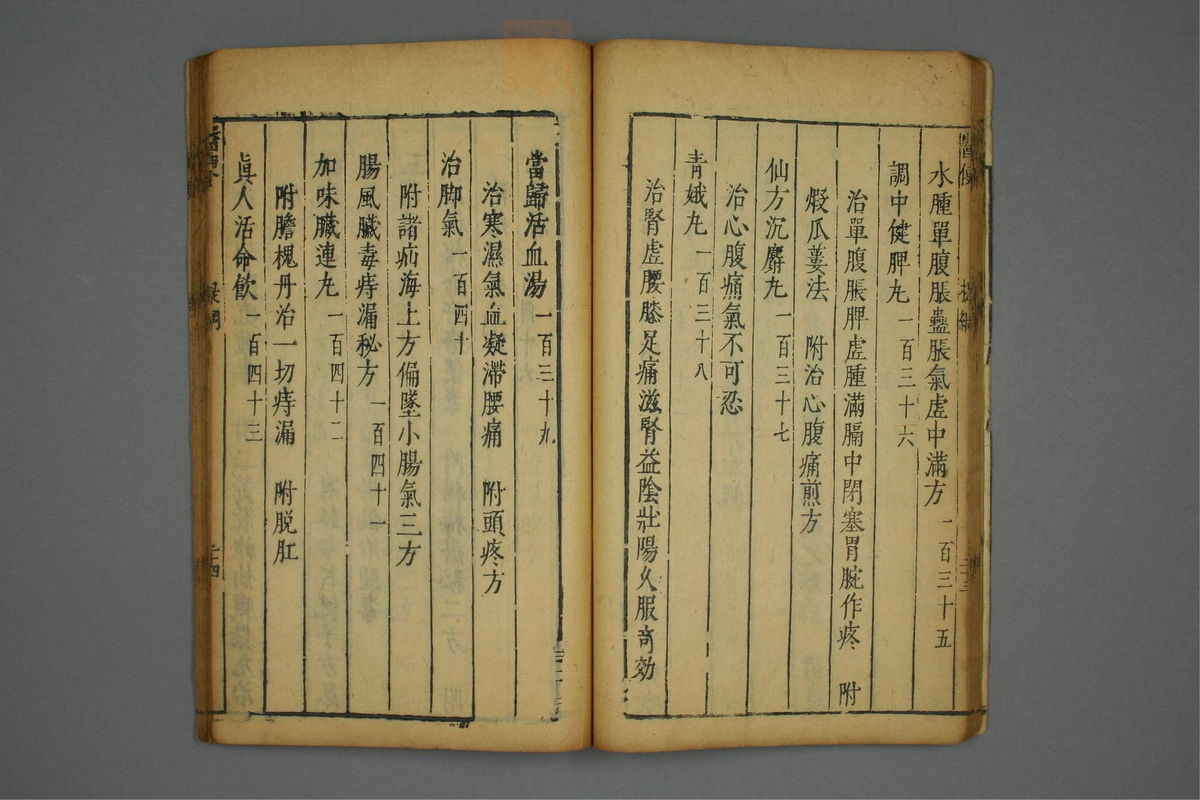 水腫單腹脹蠱脹氣虛中滿方 一百三十五
調中健脾丸 一百三十六
治單腹脹脾虛腫滿膈中閉塞胃脘作疼 附
煅瓜蔞法 附治心腹痛煎方
仙方沉麝丸 一百三十七
治心腹痛氣不可忍
青娥丸 一百三十八
治腎虛腰膝足痛滋腎益陰壯陽久服奇効
當歸活血湯 一百三十九
治寒濕氣血凝滯腰痛 附頭疼方
治脚氣 一百四十
附諸疝海上方偏墜小腸氣三方
腸風臟毒痔漏秘方 一百四十一
加味臟連丸 一百四十二
附膽槐丹治一切痔漏 附脱肛
眞人活命飲 一百四十三
二十四